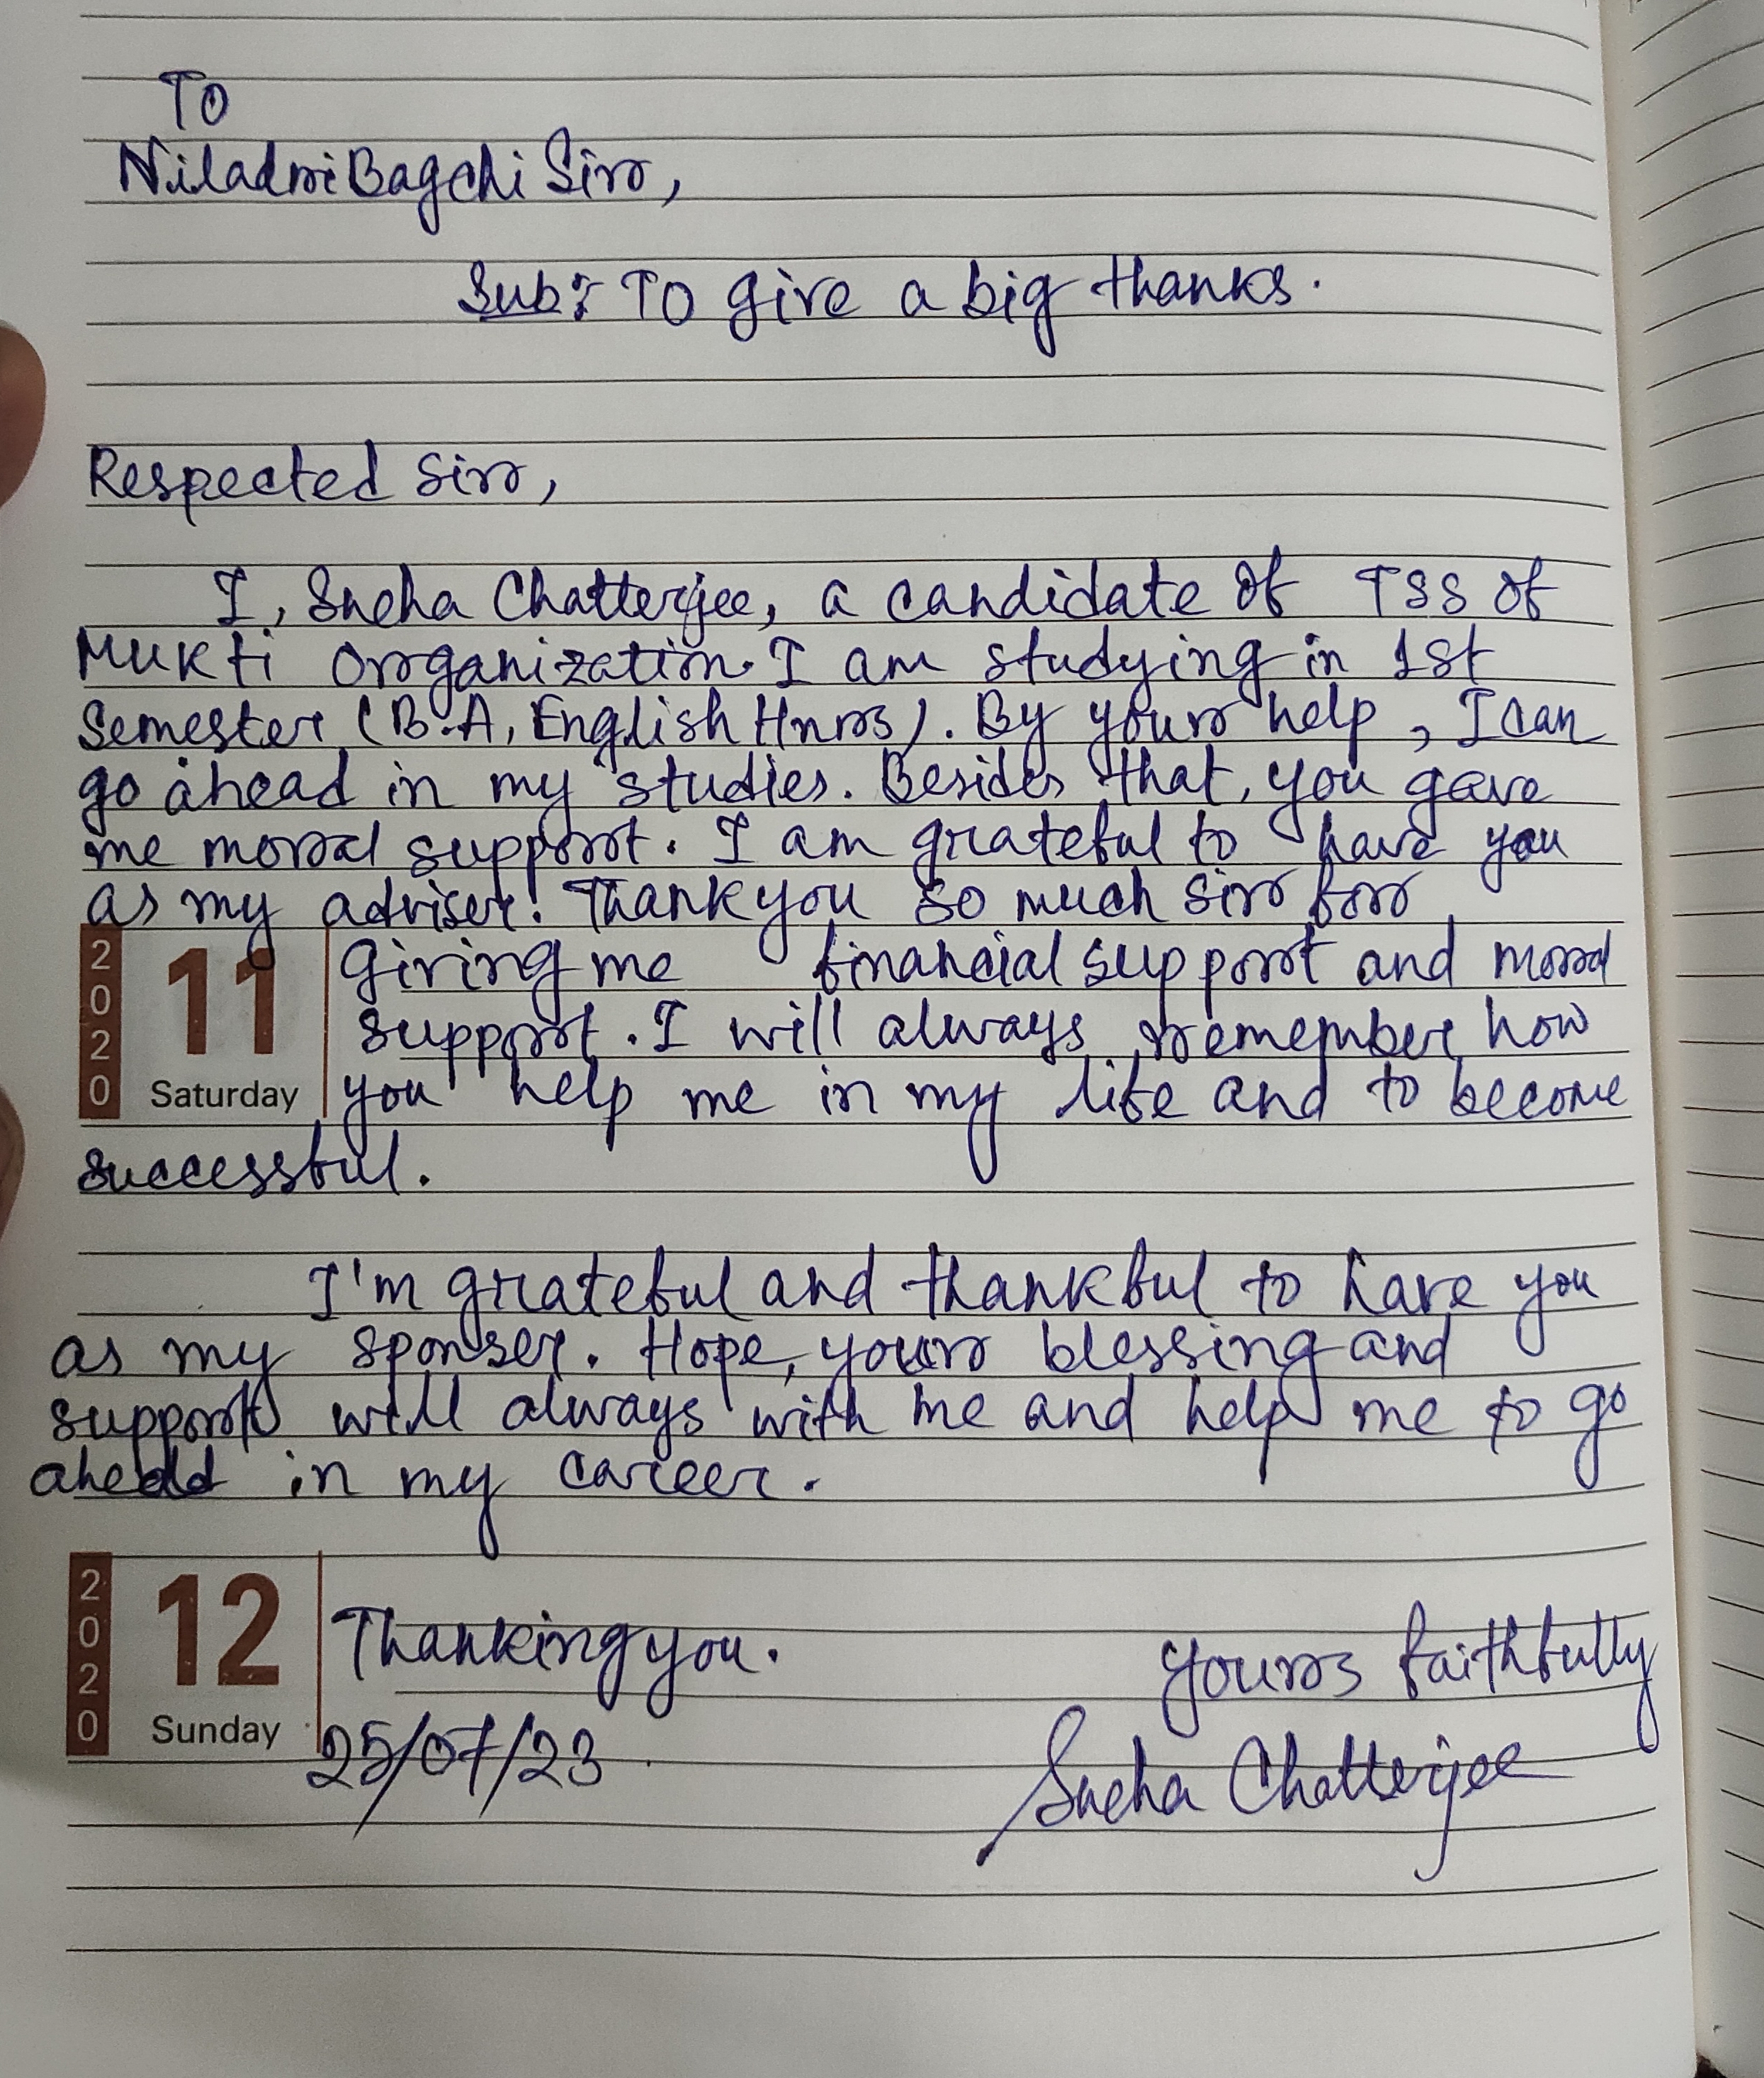 To
Niladri Bagchi Sir,
Sub: To give a big thanks.
Respected Sir,
I, Sneha Chatterjee, a candidate of TSS of
Mukti Organization. I am studying in 1st
Semester (B.A, English Hnrs). By your help, I can
go ahead in my studies. Besides that, you gave
me moral support. I am grateful to have you
as my adviser! Thank you so much sir for
2020 11 Saturday giving me financial support and moral
support. I will always remember how
you help me in my life and to become
successful.
I'm grateful and thankful to have you
as my sponser. Hope, your blessing and
support will always with me and help me to go
ahead in my career.
2020 12 Sunday Thanking you. Yours faithfully
25/07/23 Sneha Chatterjee